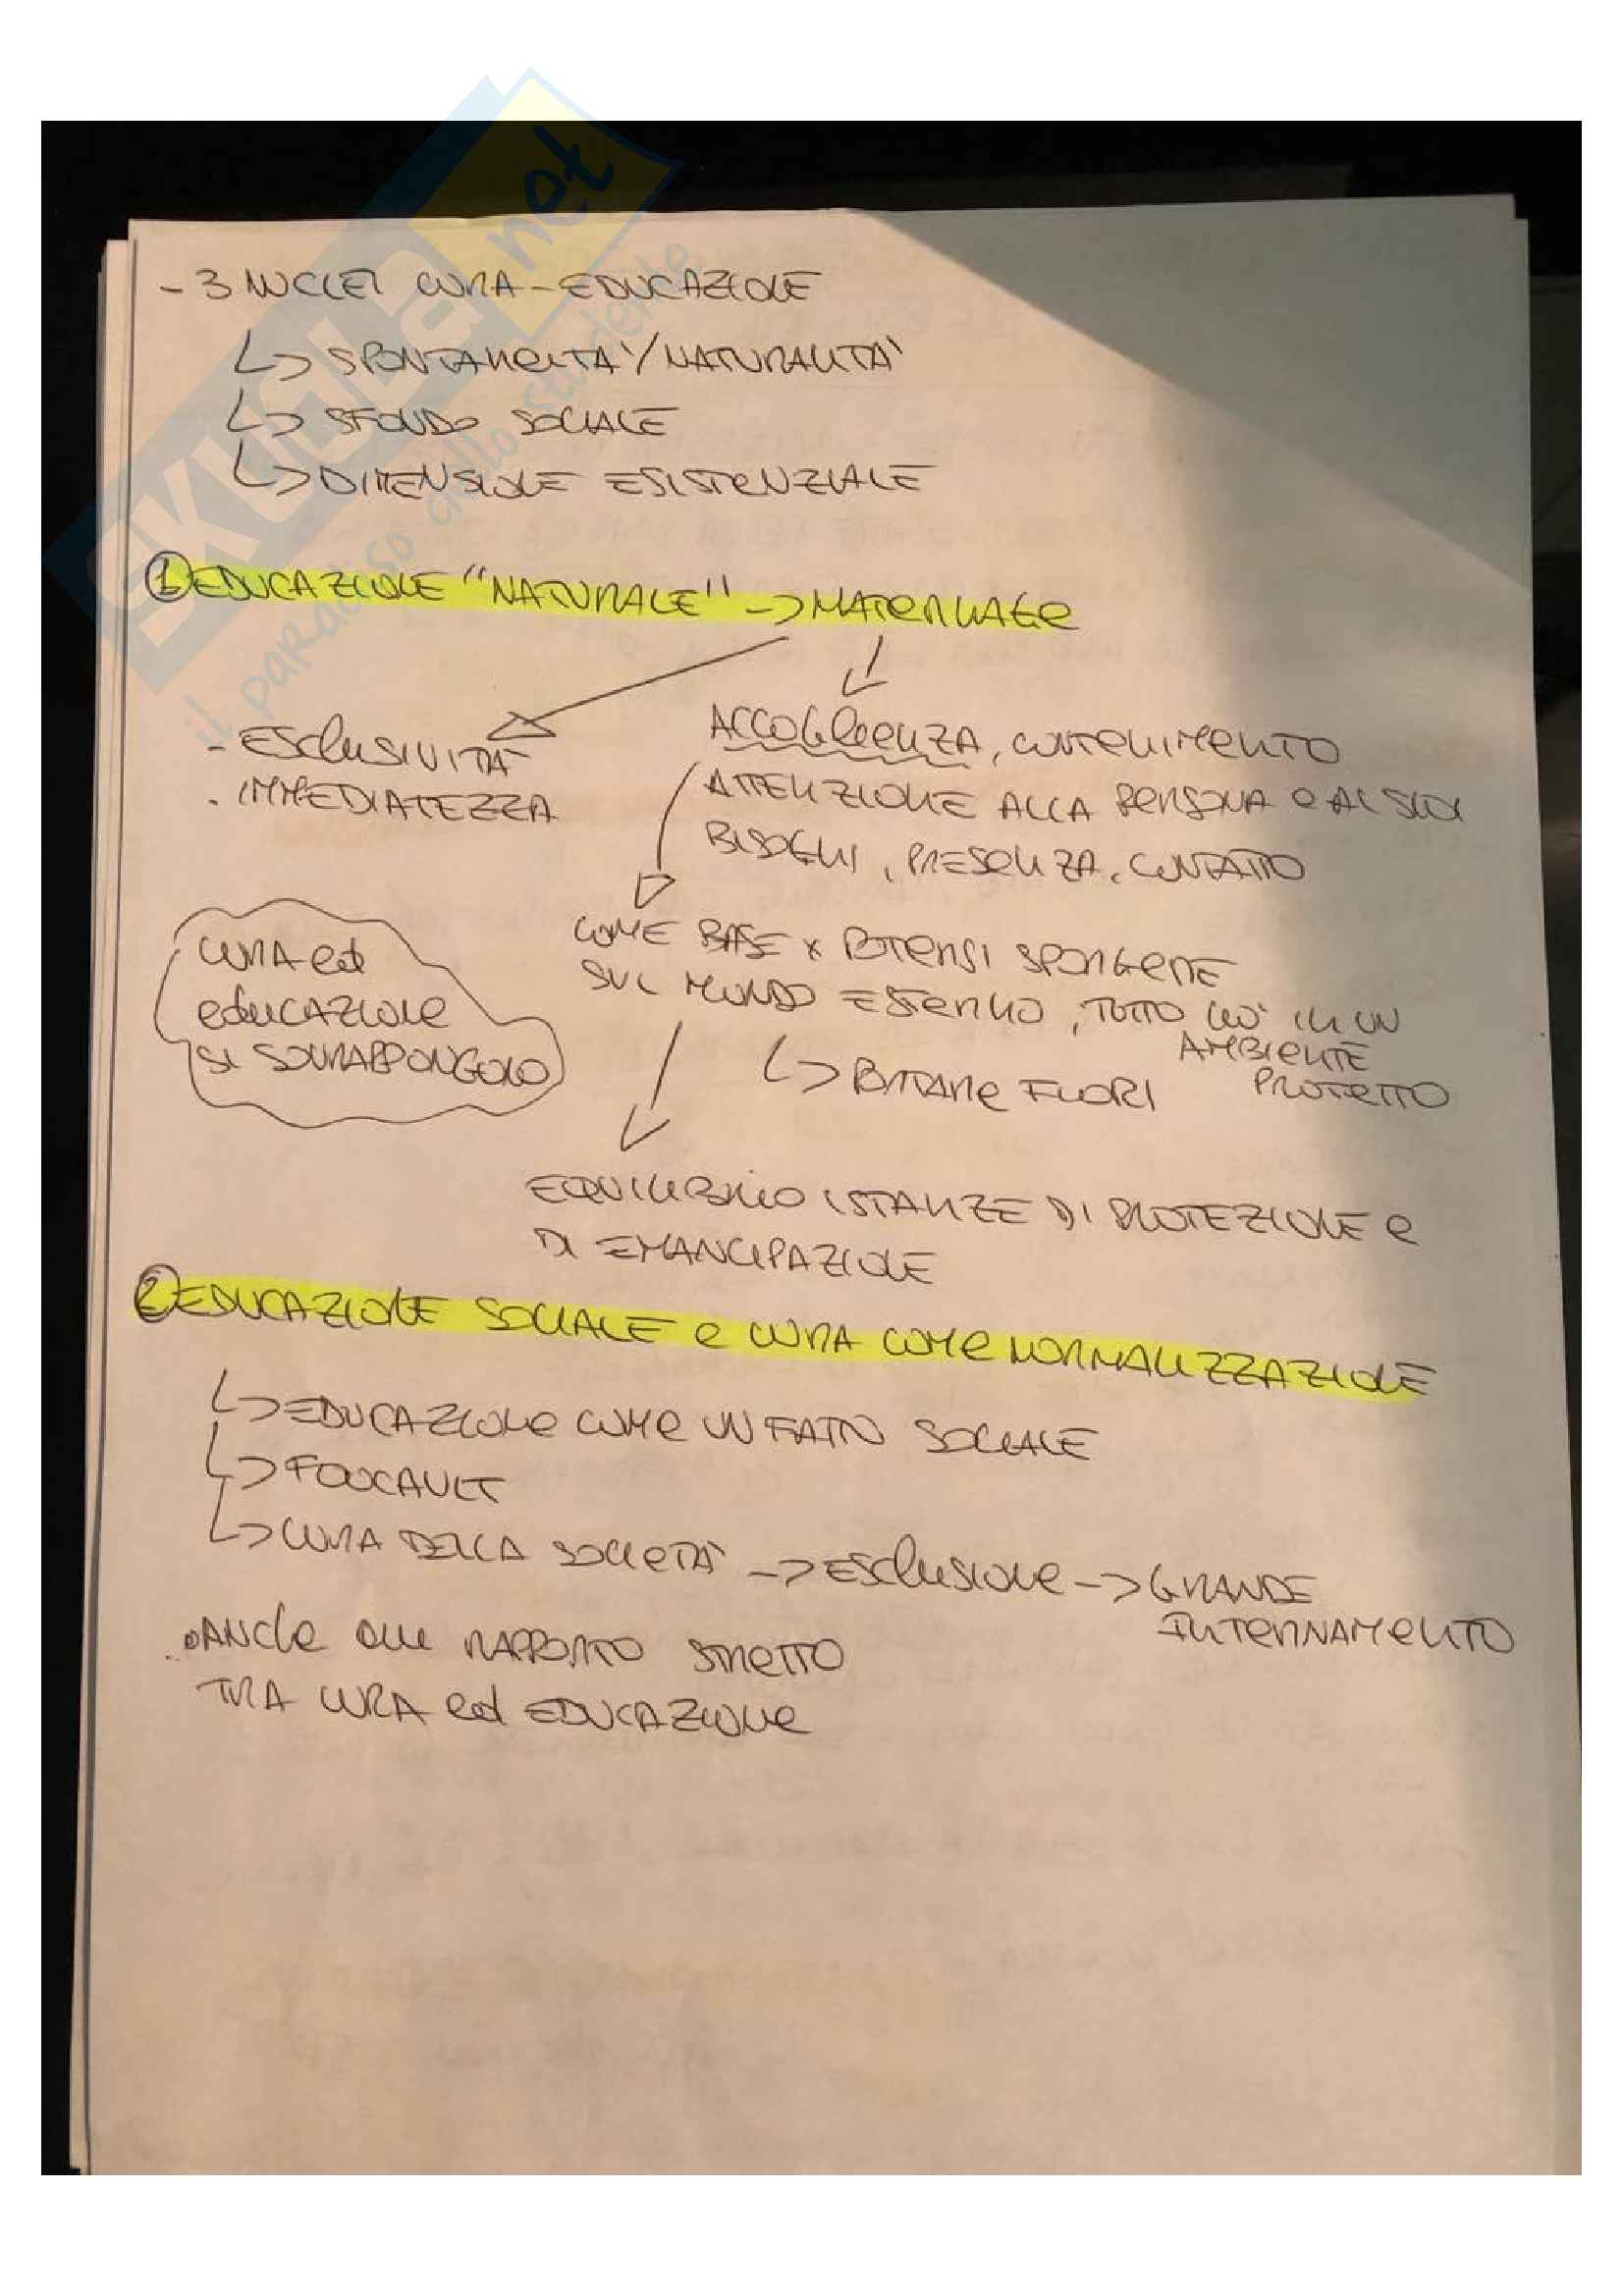 SKUOLA.net
il paradiso dello studente
- 3 NUCLEI CURA - EDUCAZIONE
↳ SPONTANEITA'/NATURALITA'
↳ SFONDO SOCIALE
↳ DIMENSIONE ESISTENZIALE
① EDUCAZIONE "NATURALE" -> MATERNAGE
- ESCLUSIVITÀ
. IMMEDIATEZZA
ACCOGLIENZA, CONTENIMENTO
ATTENZIONE ALLA PERSONA E AI SUOI
BISOGNI, PRESENZA, CONTATTO
COME BASE x POTERSI SPORGERE
SUL MONDO ESTERNO, TUTTO CIO' IN UN
AMBIENTE
PROTETTO
↳ PORTARE FUORI
CURA ed
educazione
SI SOVRAPPONGONO
EQUILIBRIO ISTANZE DI PROTEZIONE E
DI EMANCIPAZIONE
② EDUCAZIONE SOCIALE e CURA COME NORMALIZZAZIONE
↳ EDUCAZIONE COME UN FATTO SOCIALE
↳ FOUCAULT
↳ CURA DELLA SOCIETA' -> ESCLUSIONE -> GRANDE
INTERNAMENTO
ANCHE QUI RAPPORTO STRETTO
TRA CURA ed EDUCAZIONE